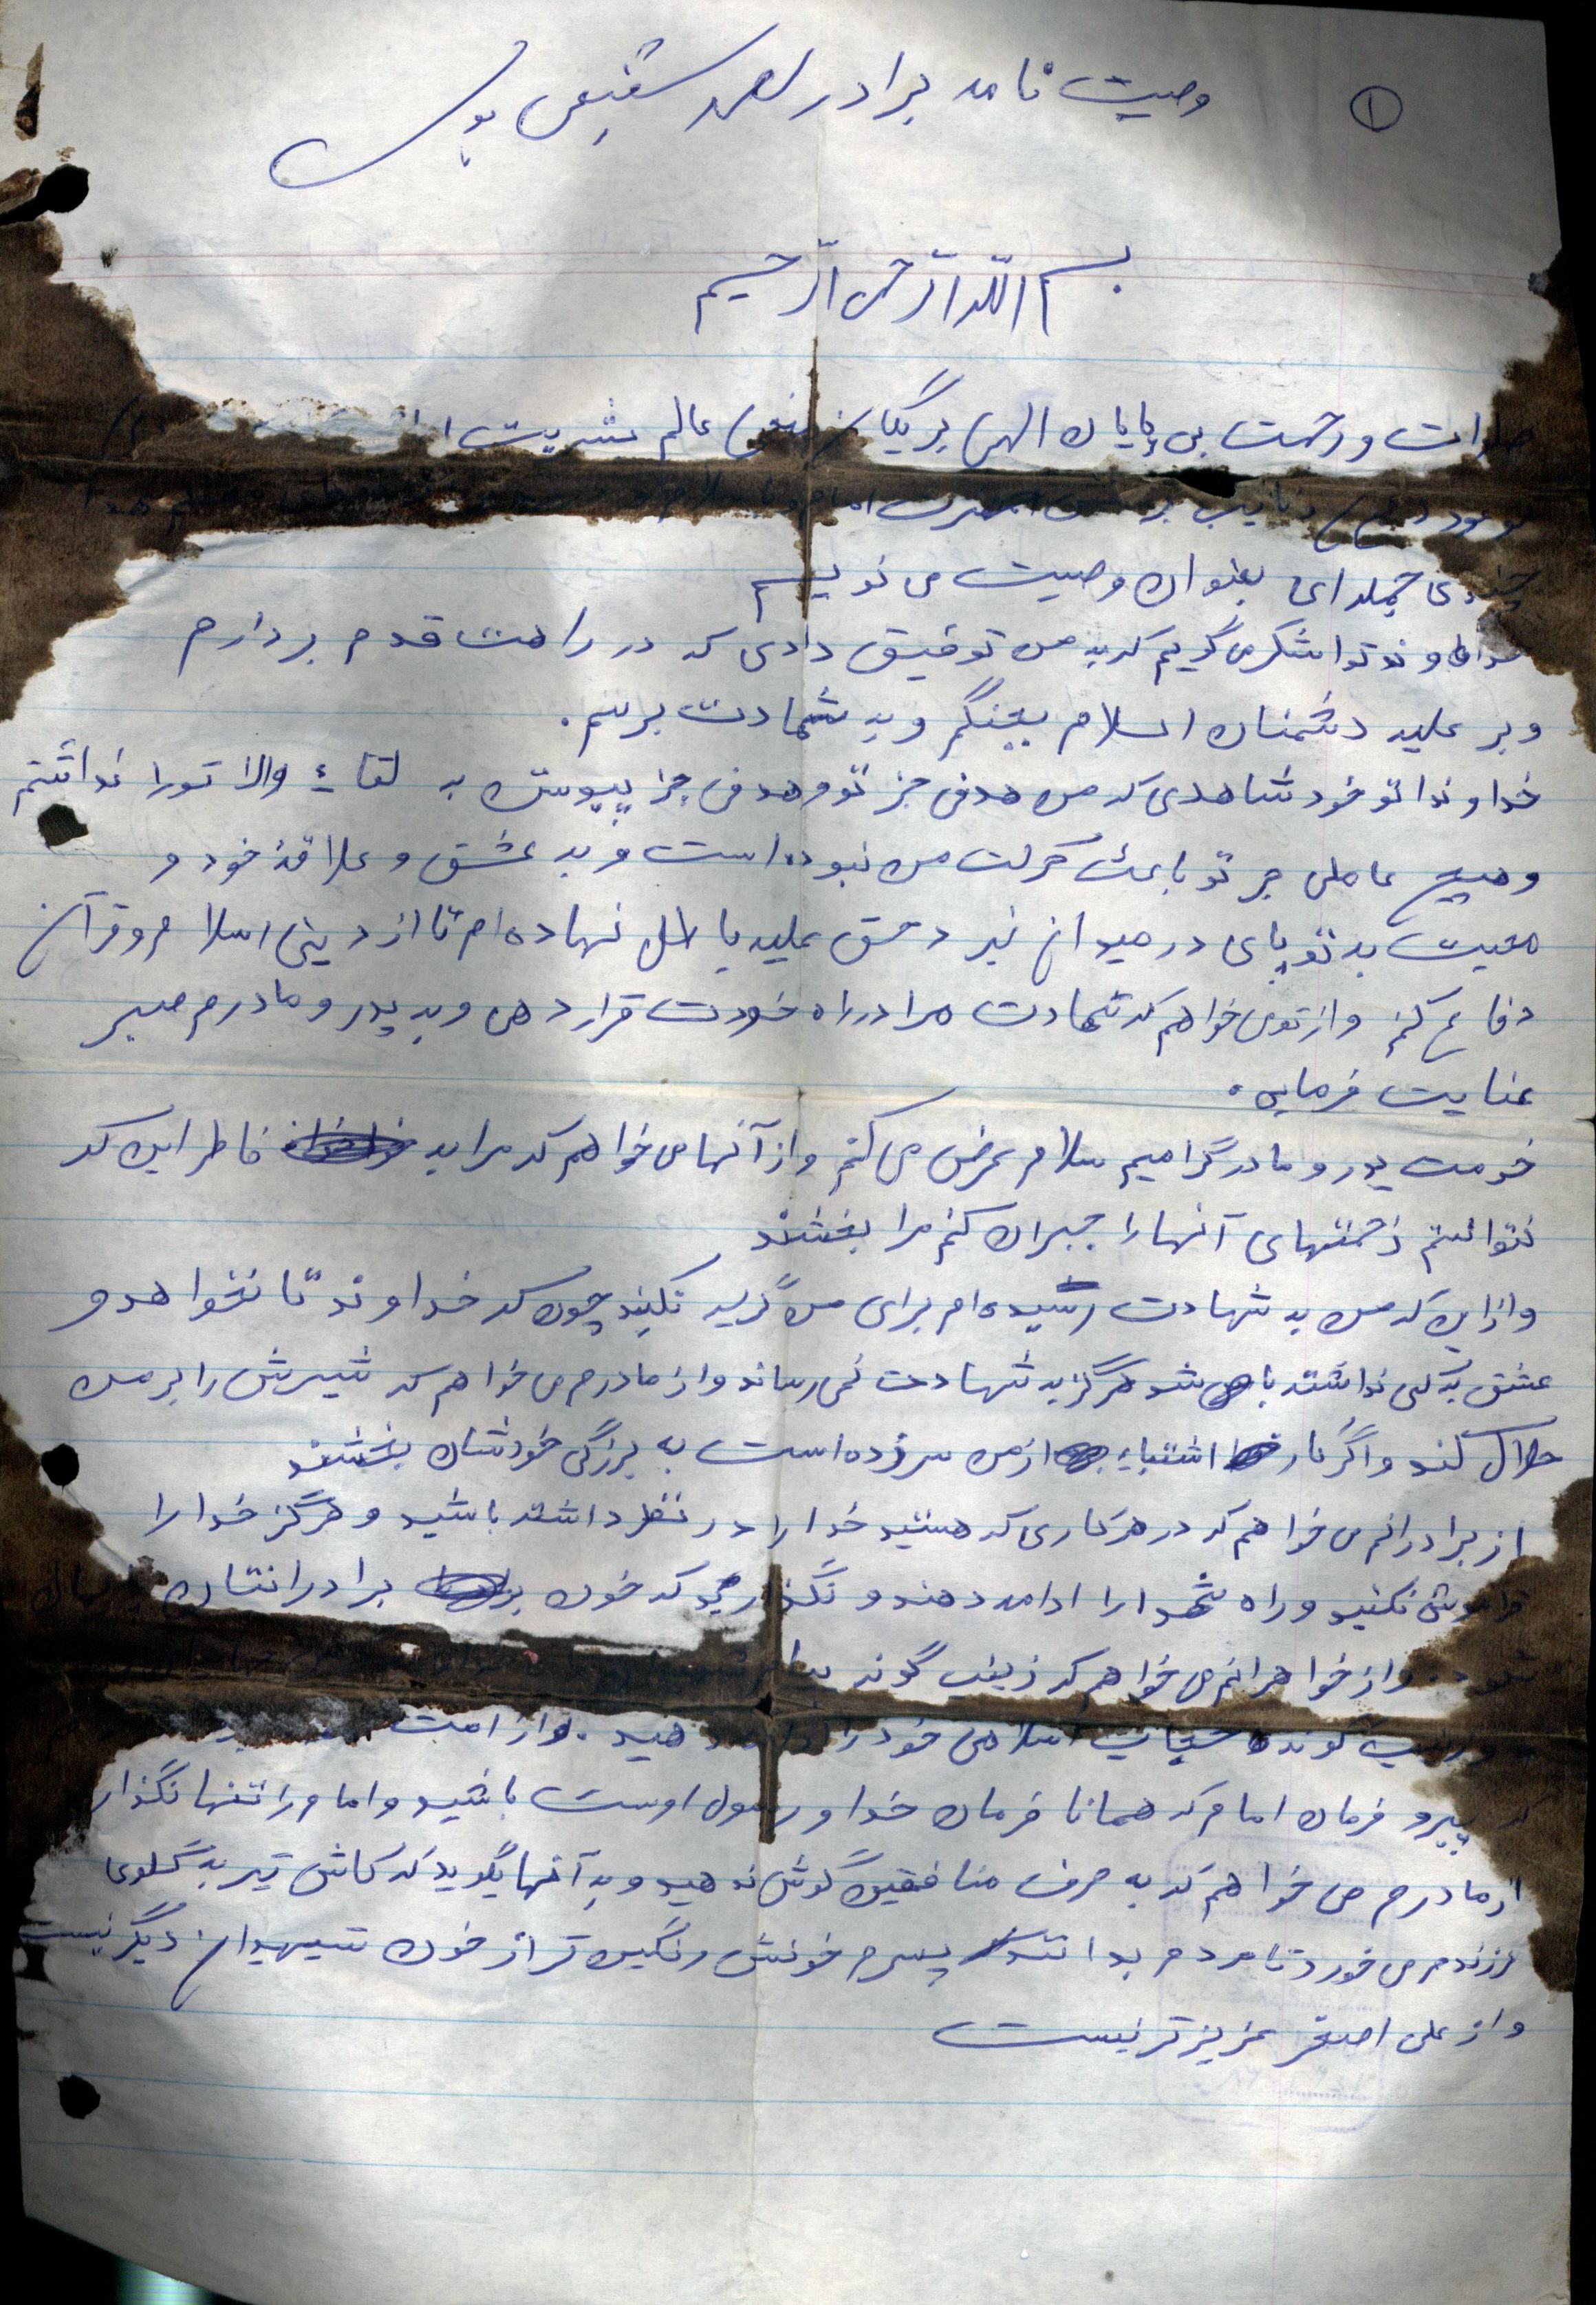 ۱
وصیت نامه برادر شفیعی
بسم الله الرّحمن الرّحیم
صلوات و رحمت بی پایان الهی بر یگانه منجی عالم بشریت
موعود (عج) و نایب بر حقش امام
چندی جمله ای بعنوان وصیت می نویسم
خداوند تو را شکر می گویم که به من توفیق دادی که در راهت قدم بردارم
و بر علیه دشمنان اسلام بجنگم و به شهادت برسم.
خداوندا تو خود شاهدی که من هدفی جز تو و هدفی جز پیوستن به لقاء والا تو را نداشتم
و هیچ عاملی جز تو باعث حرکت من نبوده است و به عشق و علاقه خود و
محبت به تو پای در میدان نبرد حق علیه باطل نهاده ام تا از دین اسلام و قرآن
دفاع کنم و از تو می خواهم که شهادت مرا در راه خودت قرار دهی و به پدر و مادرم صبر
عنایت فرمایی.
خدمت پدر و مادر گرامیم سلام عرض می کنم و از آنها می خواهم که مرا به خاطر این که
نتوانستم زحمتهای آنها را جبران کنم مرا ببخشند
و از این که من به شهادت رسیده ام برای من گریه نکنید چون که خداوند تا نخواهد و
عشق به کسی نداشته باشد هرگز به شهادت نمی رساند و از مادرم می خواهم که شیرش را بر من
حلال کند و اگر کار اشتباه از من سر زده است به بزرگی خودشان ببخشند
از برادرانم می خواهم که در هر کاری که هستید خدا را در نظر داشته باشید و هرگز خدا را
فراموش نکنید و راه شهدا را ادامه دهند و نگذارید که خون برادرانتان پایمال
شود. و از خواهرانم می خواهم که زینب گونه
و زینب گونه حجاب اسلامی خود را ادامه دهید. و از امت
که پیرو فرمان امام که همانا فرمان خدا و رسول اوست باشید و امام را تنها نگذار
از مادرم می خواهم که به حرف منافقین گوش ندهید و به آنها بگوید که کاش تیر به گلوی
فرزندم می خورد تا مردم بدانند پسرم خونش رنگین تر از خون شهیدان دیگر نیست
و از علی اصغر عزیزتر نیست